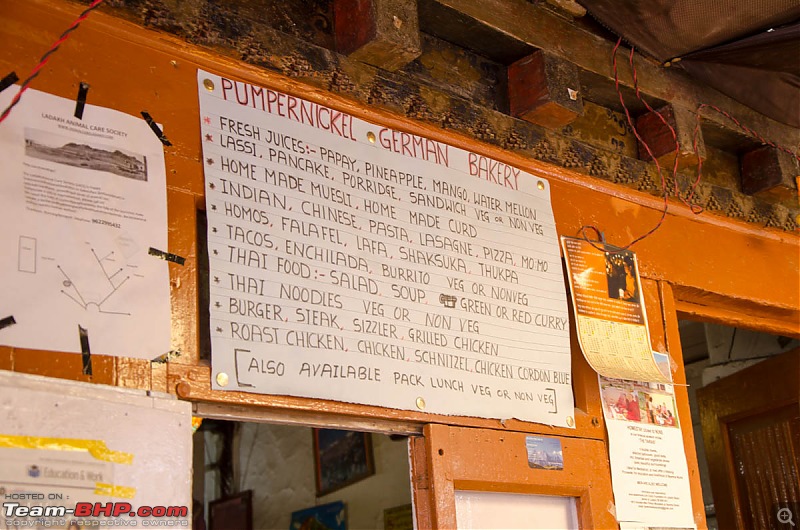 PUMPERNICKEL GERMAN BAKERY
* FRESH JUICES:- PAPAY, PINEAPPLE, MANGO, WATER MELLON
* LASSI, PANCAKE, PORRIDGE, SANDWICH VEG OR NON VEG
* HOME MADE MUESLI, HOME MADE CURD
* INDIAN, CHINESE, PASTA, LASAGNE, PIZZA, MO:MO
* HOMOS, FALAFEL, LAFA, SHAKSUKA, THUKPA
* TACOS, ENCHILADA, BURRITO VEG OR NONVEG
* THAI FOOD:- SALAD, SOUP, GREEN OR RED CURRY
* THAI NOODLES VEG OR NON VEG
* BURGER, STEAK, SIZZLER, GRILLED CHICKEN
* ROAST CHICKEN, CHICKEN, SCHNITZEL, CHICKEN CORDON BLUE
[ALSO AVAILABLE PACK LUNCH VEG OR NON VEG]
LADAKH ANIMAL CARE SOCIETY
Education & Work
HOSTED ON :
Team-BHP.com
copyright respective owners